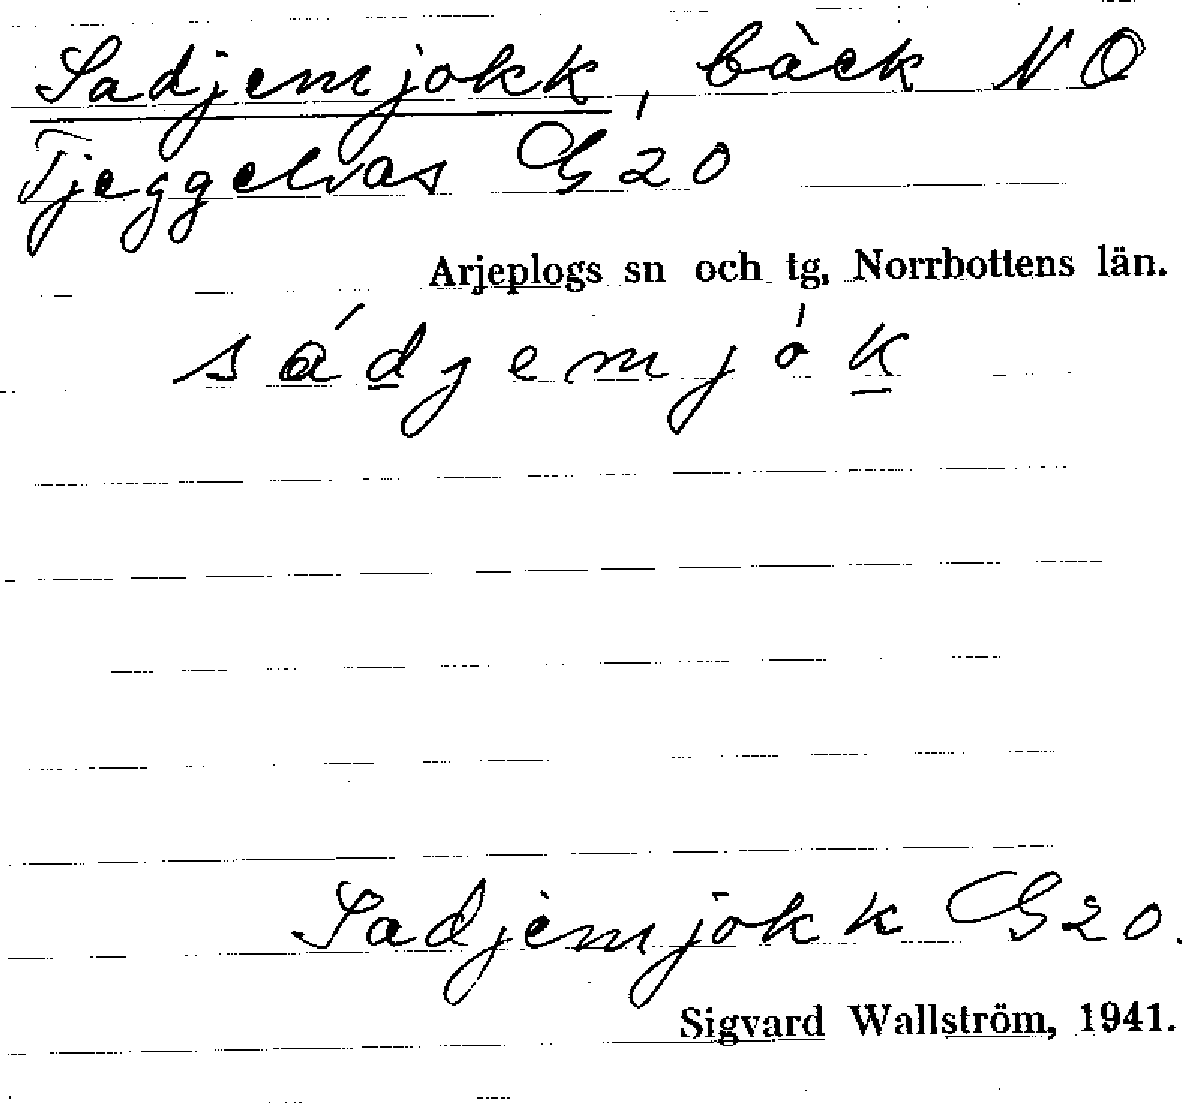 Sadjemjokk, bäck N O
Tjeggelvas G 20
Arjeplogs sn och tg, Norrbottens län.
sádjemjók
Sadjemjokk G 20.
Sigvard Wallström, 1941.